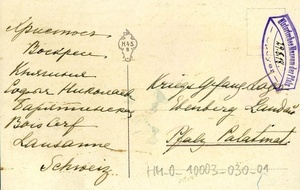 Христосъ
Воскресъ
Княгиня
Софья Николаев
Барятинска
Boiscerf
Lausanne
Schweiz
H&S
B
Kriegsgefang. Lag
Ebenberg Landau
Pfalz Palatinat.
HM-0-10003-030-01